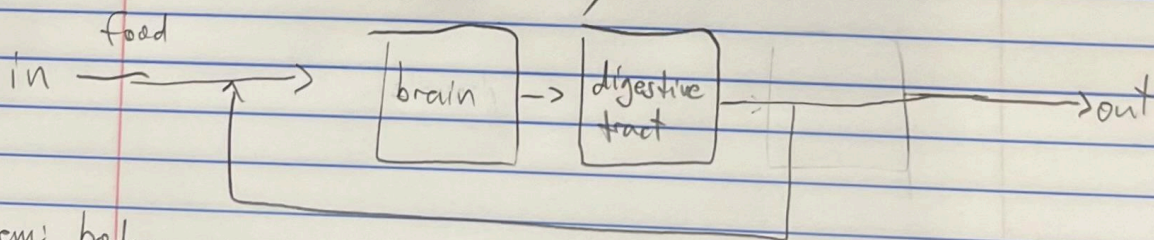 food
in
brain
digestive
tract
out